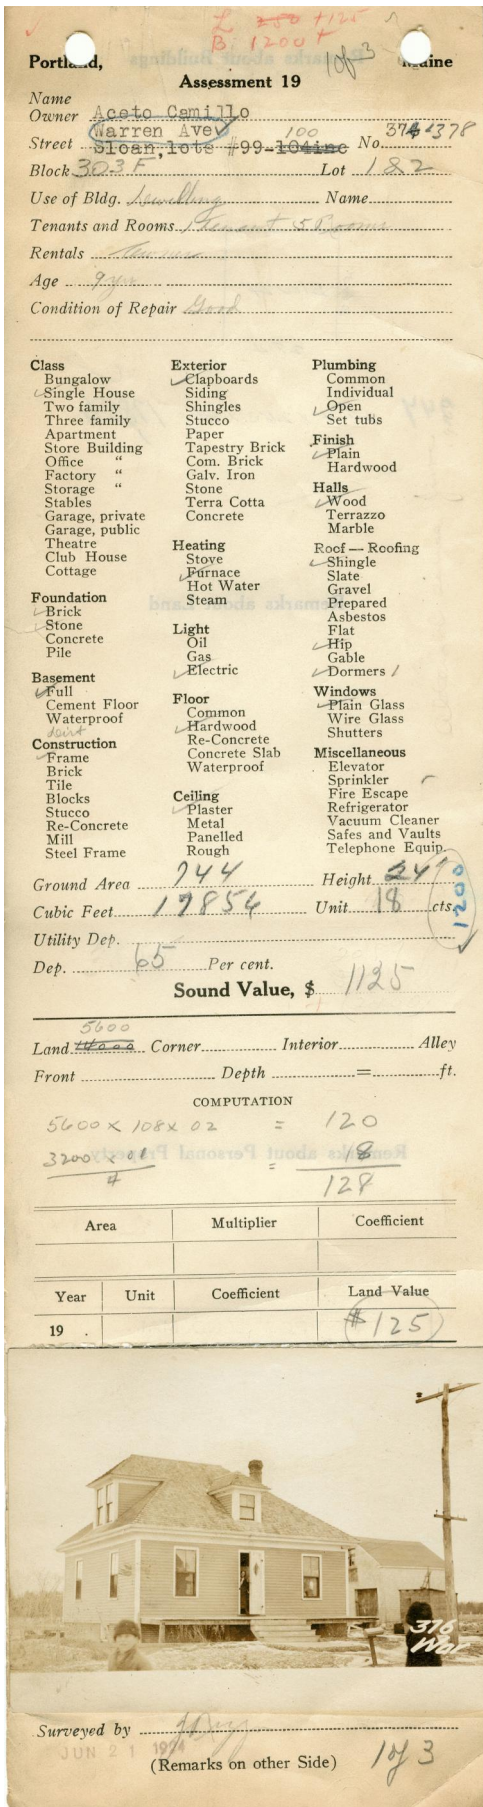 L 250 + 125
B: 1200 +
1 of 3
Portland, Maine
Assessment 19
Name
Owner Aceto Camillo
Warren Ave
100
Street Sloan, lots #99-104inc No. 374-378
Block 303 F Lot 1 & 2
Use of Bldg. Dwelling Name
Tenants and Rooms 1 Tenant 5 Rooms
Rentals Owner
Age 9 yrs
Condition of Repair Good
Class
Bungalow
Single House
Two family
Three family
Apartment
Store Building
Office "
Factory "
Storage "
Stables
Garage, private
Garage, public
Theatre
Club House
Cottage
Foundation
Brick
Stone
Concrete
Pile
Basement
Full
Cement Floor
Waterproof
dirt
Construction
Frame
Brick
Tile
Blocks
Stucco
Re-Concrete
Mill
Steel Frame
Exterior
Clapboards
Siding
Shingles
Stucco
Paper
Tapestry Brick
Com. Brick
Galv. Iron
Stone
Terra Cotta
Concrete
Heating
Stove
Furnace
Hot Water
Steam
Light
Oil
Gas
Electric
Floor
Common
Hardwood
Re-Concrete
Concrete Slab
Waterproof
Ceiling
Plaster
Metal
Panelled
Rough
Plumbing
Common
Individual
Open
Set tubs
Finish
Plain
Hardwood
Halls
Wood
Terrazzo
Marble
Roof — Roofing
Shingle
Slate
Gravel
Prepared
Asbestos
Flat
Hip
Gable
Dormers 1
Windows
Plain Glass
Wire Glass
Shutters
Miscellaneous
Elevator
Sprinkler
Fire Escape
Refrigerator
Vacuum Cleaner
Safes and Vaults
Telephone Equip.
Ground Area 744 Height 24'
Cubic Feet 17856 Unit 18 cts.
1200
Utility Dep.
Dep. 65 Per cent.
Sound Value, $ 1125
5600
Land 14000 Corner Interior Alley
Front Depth = ft.
COMPUTATION
5600 x 108 x 02 = 120
3200 x 01 = 18
4
128
Area Multiplier Coefficient
Year Unit Coefficient Land Value
19 . $125
376
War
Surveyed by
JUN 21 1924
(Remarks on other Side) 1 of 3